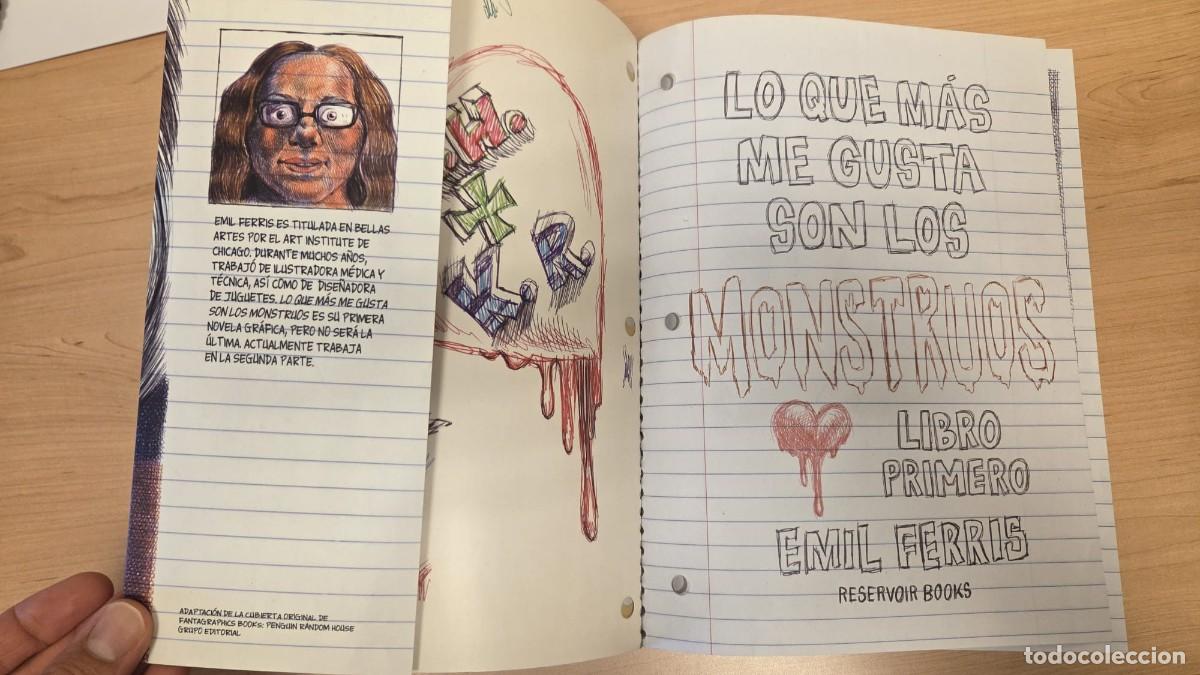 EMIL FERRIS ES TITULADA EN BELLAS
ARTES POR EL ART INSTITUTE DE
CHICAGO. DURANTE MUCHOS AÑOS,
TRABAJÓ DE ILUSTRADORA MÉDICA Y
TÉCNICA, ASÍ COMO DE DISEÑADORA
DE JUGUETES. LO QUE MÁS ME GUSTA
SON LOS MONSTRUOS ES SU PRIMERA
NOVELA GRÁFICA, PERO NO SERÁ LA
ÚLTIMA. ACTUALMENTE TRABAJA
EN LA SEGUNDA PARTE.
ADAPTACIÓN DE LA CUBIERTA ORIGINAL DE
FANTAGRAPHICS BOOKS: PENGUIN RANDOM HOUSE
GRUPO EDITORIAL
H.
+
K. R.
LO QUE MÁS
ME GUSTA
SON LOS
MONSTRUOS
LIBRO
PRIMERO
EMIL FERRIS
RESERVOIR BOOKS
todocoleccion